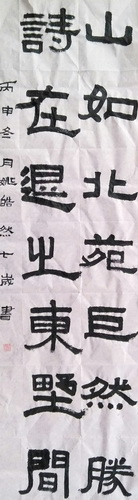 山如北苑巨然勝
詩在退之東野間
丙申冬月姚皓然七歲書